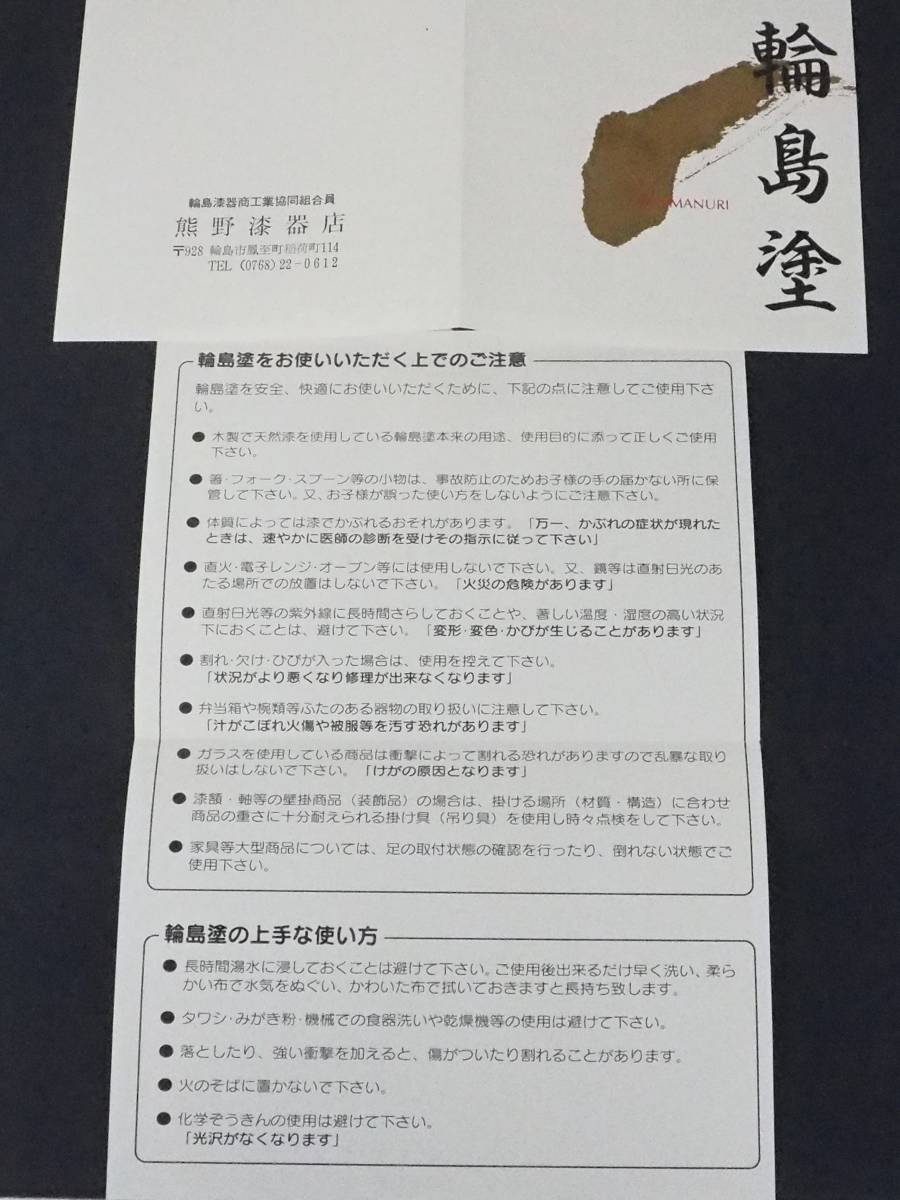 輪島塗
MANURI
輪島漆器商工業協同組合員
熊野漆器店
〒928 輪島市鳳至町稲荷町114
TEL (0768)22-0612
輪島塗をお使いいただく上でのご注意
輪島塗を安全、快適にお使いいただくために、下記の点に注意してご使用下さ
い。
●木製で天然漆を使用している輪島塗本来の用途、使用目的に添って正しくご使用
下さい。
●箸・フォーク・スプーン等の小物は、事故防止のためお子様の手の届かない所に保
管して下さい。又、お子様が誤った使い方をしないようにご注意下さい。
●体質によっては漆でかぶれるおそれがあります。「万一、かぶれの症状が現れた
ときは、速やかに医師の診断を受けその指示に従って下さい」
●直火・電子レンジ・オーブン等には使用しないで下さい。又、鏡等は直射日光のあ
たる場所での放置はしないで下さい。「火災の危険があります」
●直射日光等の紫外線に長時間さらしておくことや、著しい温度・湿度の高い状況
下におくことは、避けて下さい。「変形・変色・かびが生じることがあります」
●割れ・欠け・ひびが入った場合は、使用を控えて下さい。
「状況がより悪くなり修理が出来なくなります」
●弁当箱や椀類等ふたのある器物の取り扱いに注意して下さい。
「汁がこぼれ火傷や被服等を汚す恐れがあります」
●ガラスを使用している商品は衝撃によって割れる恐れがありますので乱暴な取り
扱いはしないで下さい。「けがの原因となります」
●漆額・軸等の壁掛商品（装飾品）の場合は、掛ける場所（材質・構造）に合わせ
商品の重さに十分耐えられる掛け具（吊り具）を使用し時々点検をして下さい。
●家具等大型商品については、足の取付状態の確認を行ったり、倒れない状態でご
使用下さい。
輪島塗の上手な使い方
●長時間湯水に浸しておくことは避けて下さい。ご使用後出来るだけ早く洗い、柔ら
かい布で水気をぬぐい、かわいた布で拭いておきますと長持ち致します。
●タワシ・みがき粉・機械での食器洗いや乾燥機等の使用は避けて下さい。
●落としたり、強い衝撃を加えると、傷がついたり割れることがあります。
●火のそばに置かないで下さい。
●化学ぞうきんの使用は避けて下さい。
「光沢がなくなります」